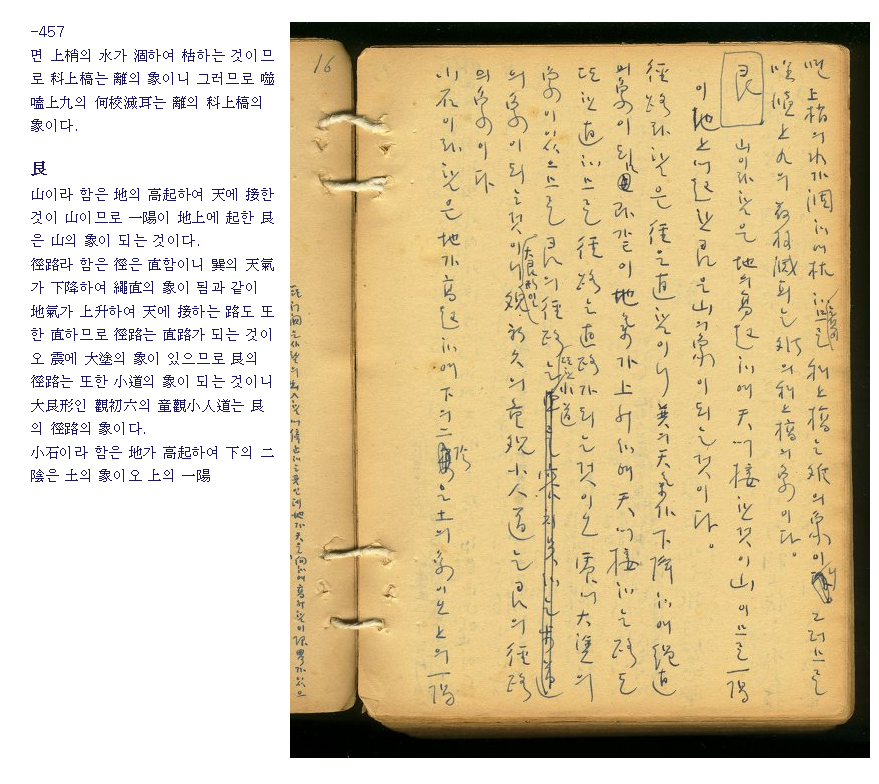 -457
면 上梢의 水가 涸하여 枯하는 것이므
로 科上槁는 離의 象이니 그러므로 噬
嗑上九의 何校滅耳는 離의 科上槁의
象이다.
艮
山이라 함은 地의 高起하여 天에 接한
것이 山이므로 一陽이 地上에 起한 艮
은 山의 象이 되는 것이다.
徑路라 함은 徑은 直함이니 巽의 天氣
가 下降하여 繩直의 象이 됨과 같이
地氣가 上升하여 天에 接하는 路도 또
한 直하므로 徑路는 直路가 되는 것이
오 震에 大塗의 象이 있으므로 艮의
徑路는 또한 小道의 象이 되는 것이니
大艮形인 觀初六의 童觀小人道는 艮
의 徑路의 象이다.
小石이라 함은 地가 高起하여 下의 二
陰은 土의 象이오 上의 一陽
16
면 上梢의 水가 涸하여 枯하는 것이므로 科上槁는 離의 象이니 그러므로
噬嗑上九의 荷校滅耳는 離의 科上槁의 象이다.
艮 山이라 함은 地의 高起하여 天에 接한 것이 山이므로 一陽
이 地上에 起한 艮은 山의 象이 되는 것이다.
徑路라 함은 徑은 直함이니 巽의 天氣가 下降하여 繩直
의 象이 됨과 같이 地氣가 上升하여 天에 接하는 路도
또한 直하므로 徑路는 直路가 되는 것이오 震에 大塗의
象이 있으므로 艮의 徑路는 또한 小道
의 象이 되는 것이니 大艮形인 觀初六의 童觀小人道는 艮의 徑路
의 象이다
小石이라 함은 地가 高起하여 下의 二陰은 土의 象이오 上의 一陽